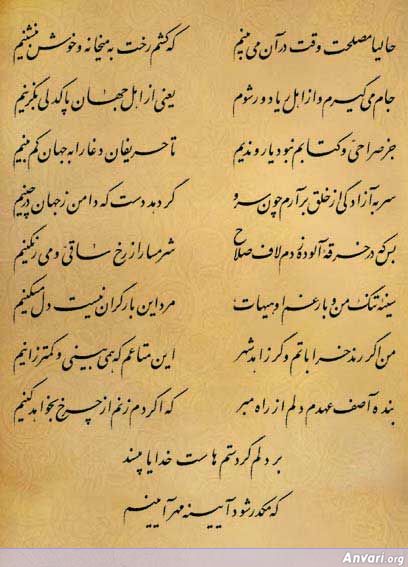 حالیا مصلحت وقت در آن می بینم که کشم رخت به میخانه و خوش بنشینم
جام می گیرم و از اهل ریا دور شوم یعنی از اهل جهان پاکدلی بگزینم
جز صراحی و کتابم نبود یار و ندیم تا حریفان دغا را به جهان کم بینم
سر به آزادگی از خلق برآرم چون سرو گر دهد دست که دامن ز جهان درچینم
بس که در خرقه آلوده زدم لاف صلاح شرمسار از رخ ساقی و می رنگینم
سینه تنگ من و بار غم او هیهات مرد این بار گران نیست دل مسکینم
من اگر رند خراباتم و گر زاهد شهر این متاعم که همی بینی و کمتر زینم
بنده آصف عهدم دلم از راه مبر که اگر دم زنم از چرخ بخواهد کینم
بر دلم گرد ستم هاست خدایا مپسند
که مکدر شود آیینه مهرآیینم
Anvari.org